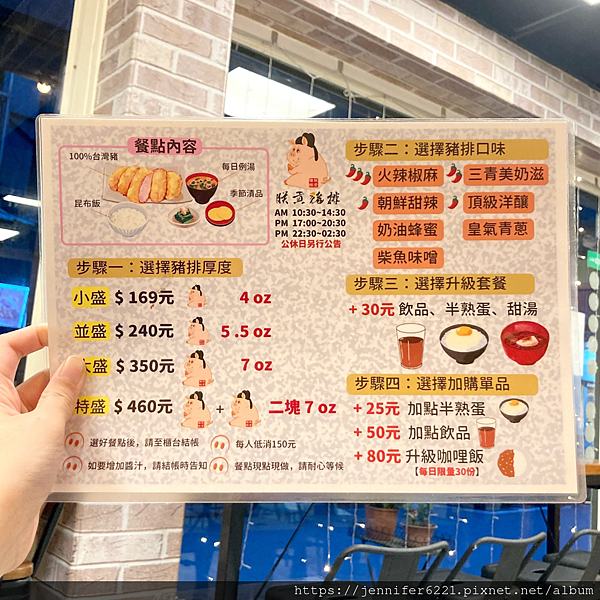 餐點內容
100%台灣豬
每日例湯
季節漬品
昆布飯
朕黃豬排
AM 10:30~14:30
PM 17:00~20:30
PM 22:30~02:30
公休日另行公告
步驟一：選擇豬排厚度
小盛 $169元 4 oz
並盛 $240元 5.5 oz
大盛 $350元 7 oz
特盛 $460元 + 二塊 7 oz
選好餐點後，請至櫃台結帳
每人低消150元
如要增加醬汁，請結帳時告知
餐點現點現做，請耐心等候
步驟二：選擇豬排口味
火辣椒麻
三青美奶滋
朝鮮甜辣
頂級洋釀
奶油蜂蜜
皇氣青蔥
柴魚味噌
步驟三：選擇升級套餐
+30元 飲品、半熟蛋、甜湯
步驟四：選擇加購單品
+25元 加點半熟蛋
+50元 加點飲品
+80元 升級咖哩飯
【每日限量30份】
https://jennifer6221.pixnet.net/album